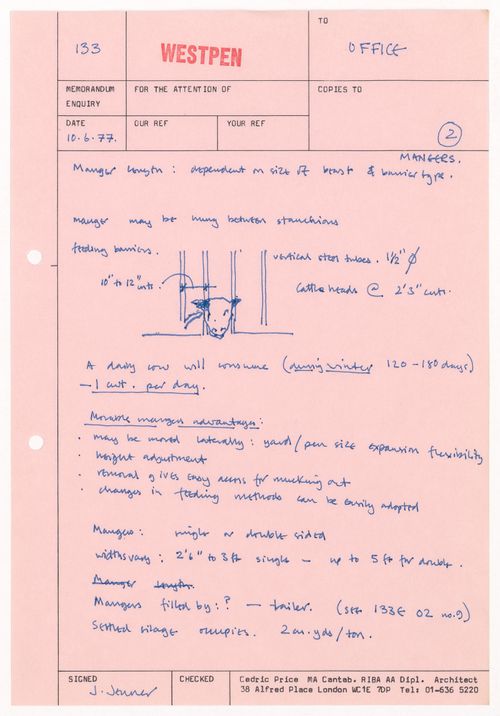 133
WESTPEN
TO
OFFICE
MEMORANDUM
ENQUIRY
FOR THE ATTENTION OF
COPIES TO
DATE
10.6.77.
OUR REF
YOUR REF
2
MANGERS.
Manger Length : dependent on size of beast & barrier type.
manger may be hung between stanchions
feeding barriers.
vertical steel tubes. 1½" ϕ
10" to 12" cntrs.
Cattle heads @ 2'3" cntrs.
A dairy cow will consume (during winter 120 – 180 days)
– 1 cwt. per day.
Movable mangers advantages:
· may be moved laterally : yard/pen size expansion flexibility
· height adjustment
· removal gives easy access for mucking out
· changes in feeding methods can be easily adopted
Mangers : single or double sided
widths vary : 2'6" to 3ft single – up to 5ft for double.
Manger Length.
Mangers filled by : ? – trailer. (see 133E 02 no.9)
Settled silage occupies. 2 cu.yds/ton.
SIGNED
J. Jenner
CHECKED
Cedric Price MA Cantab. RIBA AA Dipl. Architect
38 Alfred Place London WC1E 7DP Tel: 01-636 5220